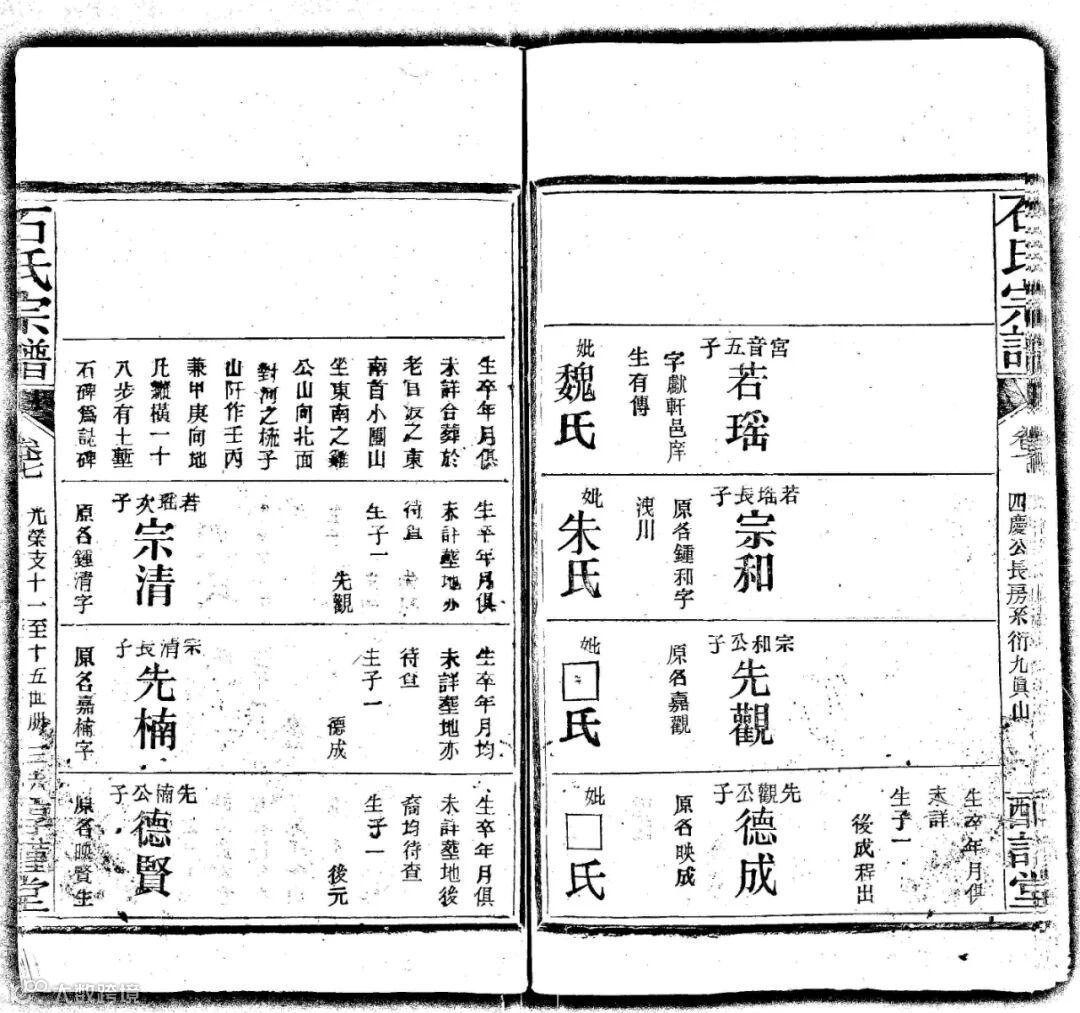 石氏宗譜
卷七
四慶公長房系衍九眞山
酉詒堂
宮音五子
若瑶
字獻軒邑庠
生有傳
妣
魏氏
若瑶長子
宗和
原名鍾和字
洩川
妣
朱氏
宗和公子
先觀
原名嘉觀
妣
□氏
生卒年月俱
未詳
生子一
後成程出
先觀公子
德成
原名映成
妣
□氏
生卒年月俱
未詳合葬於
老官坂之東
南首小團山
坐東南之雞
公山向北面
對河之梳子
山阡作壬丙
兼甲庚向地
凡縱橫一十
八步有土塹
石碑爲誌碑
生卒年月俱
未詳塟地亦
待查
生子一
先觀
若瑶次子
宗清
原名鍾清字
生卒年月均
未詳塟地亦
待查
生子一
德成
宗清長子
先楠
原名嘉楠字
生卒年月俱
未詳塟地後
裔均待查
生子一
後元
先楠公子
德賢
原名映賢生
石氏宗譜
卷七
光榮支十一至十五世册
堂
大数跨境